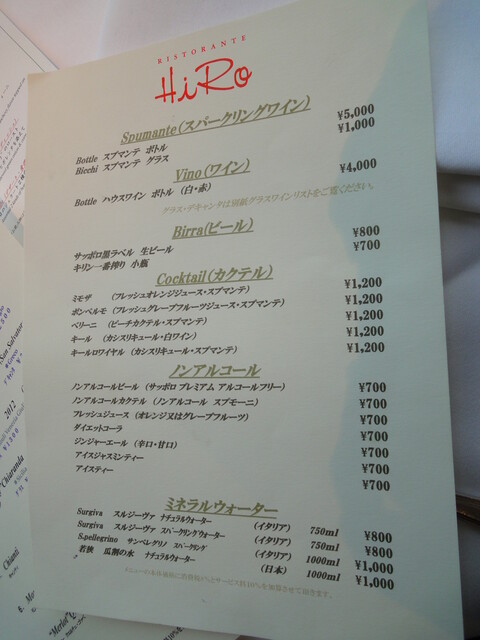 RISTORANTE
HiRo
Spumante(スパークリングワイン)
Bottle スプマンテ ボトル ¥5,000
Bicchi スプマンテ グラス ¥1,000
Vino(ワイン)
Bottle ハウスワイン ボトル (白・赤) ¥4,000
グラス・デキャンタは別紙グラスワインリストをご覧ください。
Birra(ビール)
サッポロ黒ラベル 生ビール ¥800
キリン一番搾り 小瓶 ¥700
Cocktail(カクテル)
ミモザ (フレッシュオレンジジュース・スプマンテ) ¥1,200
ポンペルモ (フレッシュグレープフルーツジュース・スプマンテ) ¥1,200
ベリーニ (ピーチカクテル・スプマンテ) ¥1,200
キール (カシスリキュール・白ワイン) ¥1,200
キールロワイヤル (カシスリキュール・スプマンテ) ¥1,200
ノンアルコール
ノンアルコールビール (サッポロ プレミアム アルコールフリー) ¥700
ノンアルコールカクテル (ノンアルコール スプモーニ) ¥700
フレッシュジュース (オレンジ又はグレープフルーツ) ¥700
ダイエットコーラ ¥700
ジンジャーエール (辛口・甘口) ¥700
アイスジャスミンティー ¥700
アイスティー ¥700
ミネラルウォーター
Surgiva スルジーヴァ ナチュラルウォーター (イタリア) 750ml ¥800
Surgiva スルジーヴァ スパークリングウォーター (イタリア) 750ml ¥800
S.pellegrino サンペレグリノ スパークリング (イタリア) 1000ml ¥1,000
若狭 瓜割の水 ナチュラルウォーター (日本) 1000ml ¥1,000
San Salvatore
2012
Chiaranda
Chianti
"Merlot"